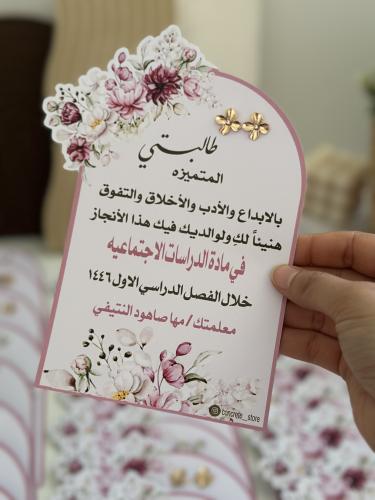 طالبتي
المتميزه
بالابداع والأدب والأخلاق والتفوق
هنيئاً لكِ ولوالديك فيك هذا الأنجاز
في مادة الدراسات الاجتماعيه
خلال الفصل الدراسي الاول ١٤٤٦
معلمتك/مها صاهود النتيفي
concrete__store